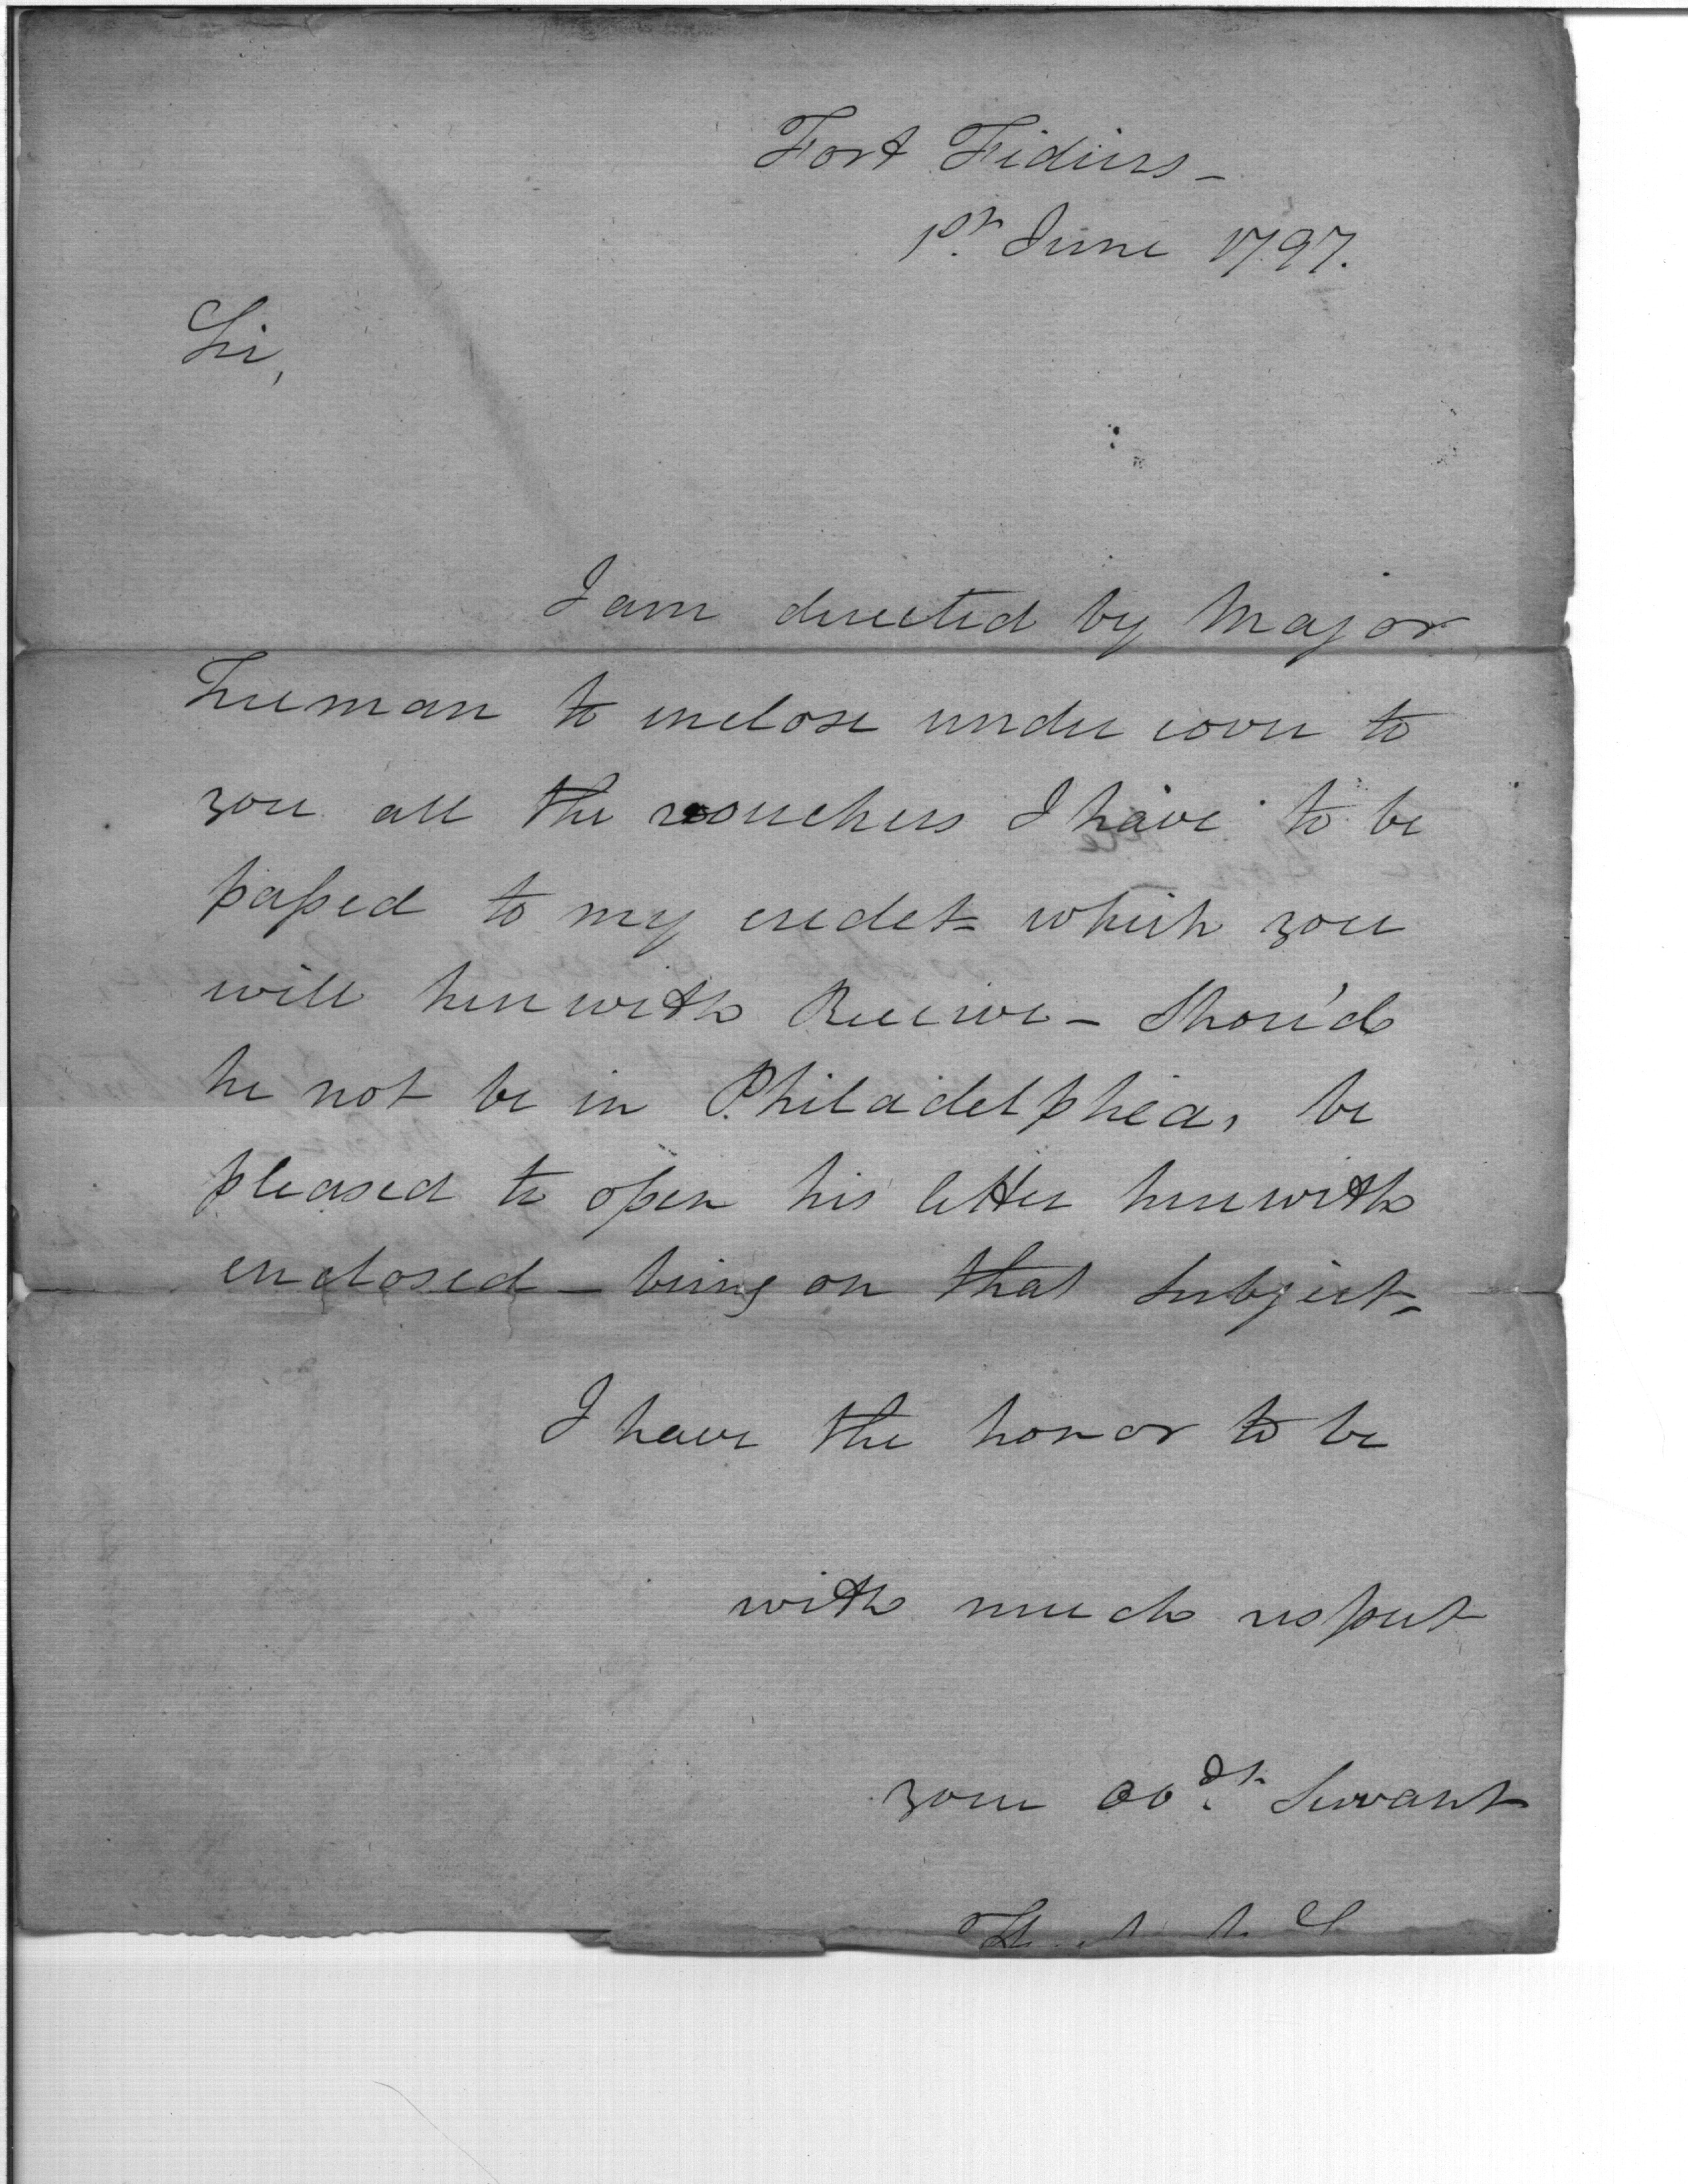 Fort Fidius –
1st. June 1797.
Sir,
I am directed by Major
Freeman to inclose under cover to
you all the vouchers I have to be
passed to my credet which you
will herewith Receive – Shou'd
he not be in Philadelphia, be
pleased to open his letter herewith
enclosed – being on that Subject –
I have the honor to be
with much respect
your Obdt. Servant